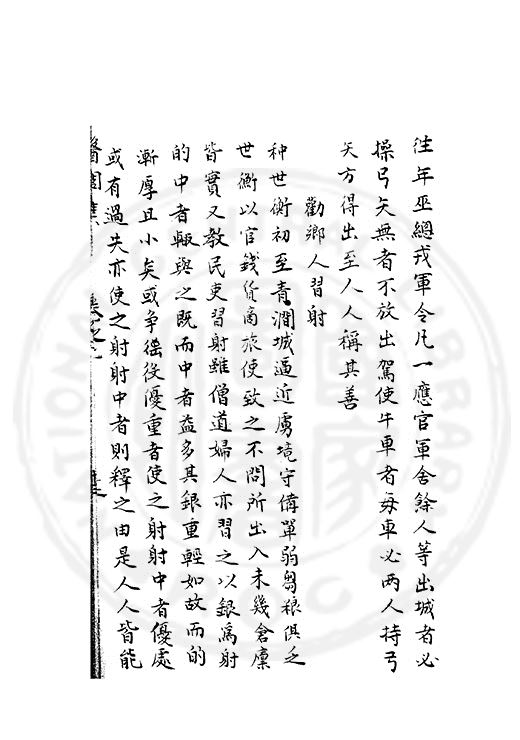 往年巫總戎軍令凡一應官軍舍餘人等出城者必
操弓矢無者不放出駕使牛車者每車必两人持弓
矢方得出至人人稱其善
勸鄉人習射
种世衡初至青澗城逼近虜境守備單弱芻粮俱乏
世衡以官錢貸商旅使致之不問所出入未幾倉廩
皆實又教民吏習射雖僧道婦人亦習之以銀為射
的中者輙與之既而中者益多其銀重輕如故而的
漸厚且小矣或争徭役優重者使之射射中者優處
或有過失亦使之射射中者則釋之由是人人皆能